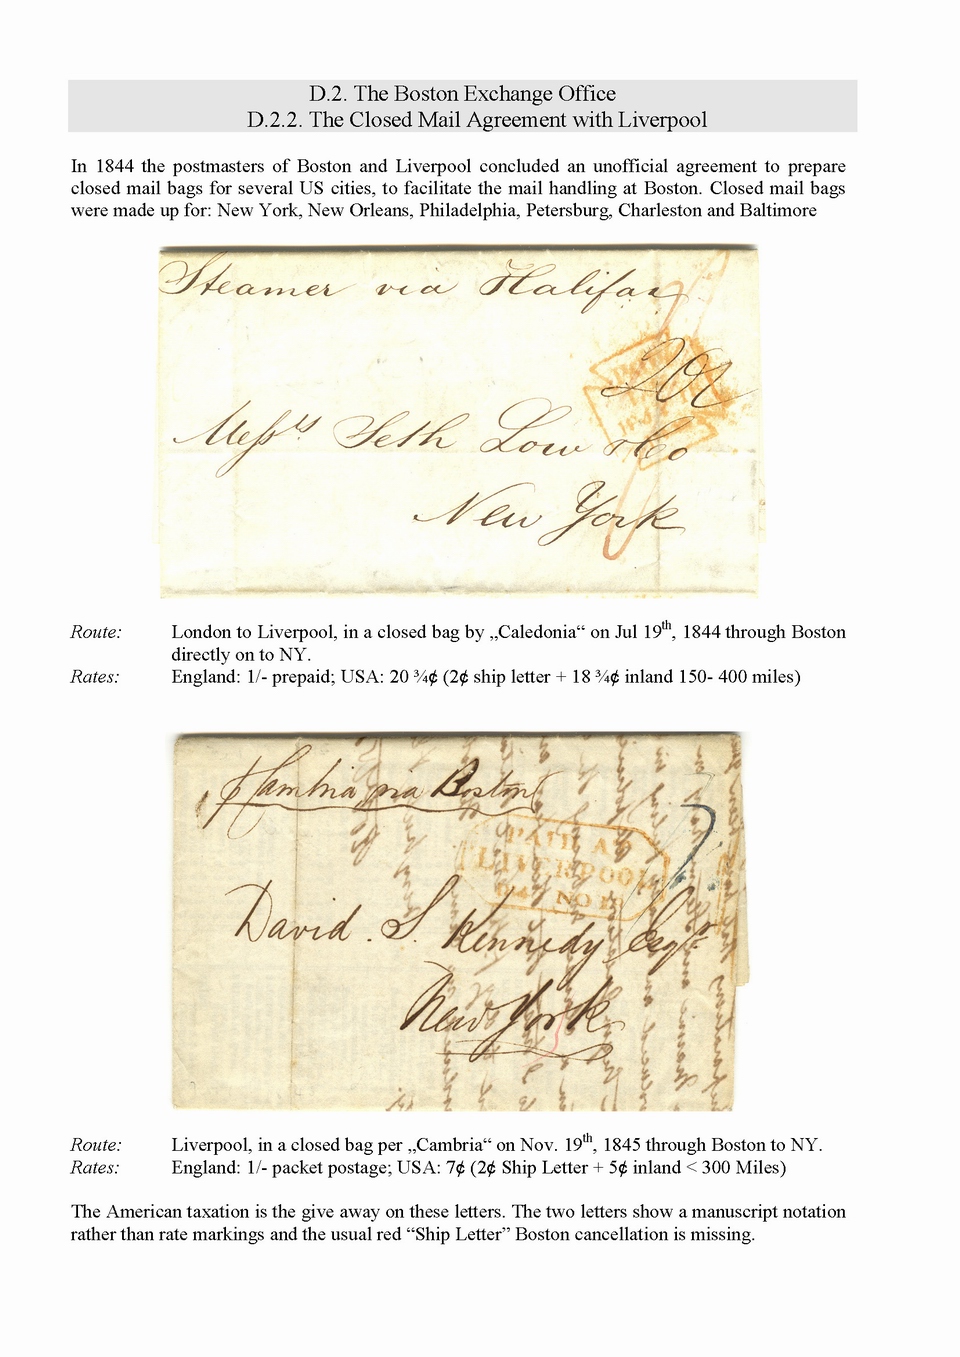 D.2. The Boston Exchange Office
D.2.2. The Closed Mail Agreement with Liverpool
In 1844 the postmasters of Boston and Liverpool concluded an unofficial agreement to prepare
closed mail bags for several US cities, to facilitate the mail handling at Boston. Closed mail bags
were made up for: New York, New Orleans, Philadelphia, Petersburg, Charleston and Baltimore
Steamer via Halifax
Messrs Seth Low & Co
New York
Route: London to Liverpool, in a closed bag by „Caledonia“ on Jul 19th, 1844 through Boston
directly on to NY.
Rates: England: 1/- prepaid; USA: 20 ¾¢ (2¢ ship letter + 18 ¾¢ inland 150- 400 miles)
p Cambria via Boston
PAID AT
LIVERPOOL
David. S. Kennedy Esqr
New York
Route: Liverpool, in a closed bag per „Cambria“ on Nov. 19th, 1845 through Boston to NY.
Rates: England: 1/- packet postage; USA: 7¢ (2¢ Ship Letter + 5¢ inland < 300 Miles)
The American taxation is the give away on these letters. The two letters show a manuscript notation
rather than rate markings and the usual red “Ship Letter” Boston cancellation is missing.